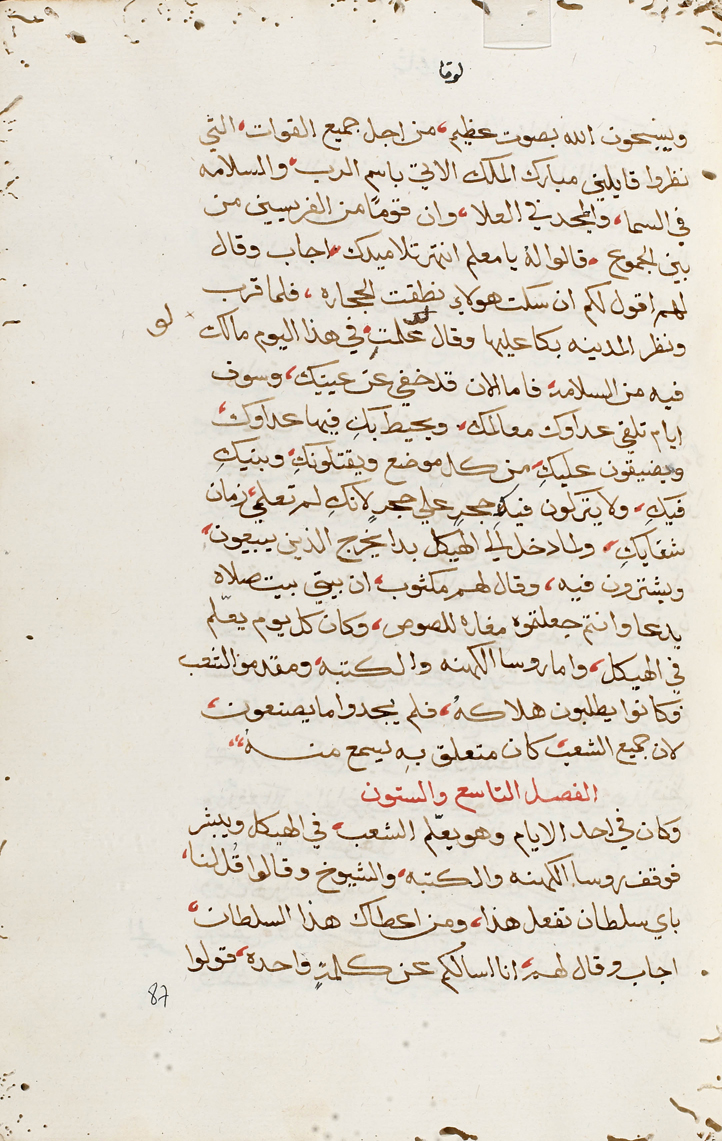 لوقا
ويسبحون الله بصوت عظيم، من اجل جميع القوات، التي
نظروا قايلين مبارك الملك الاتي باسم الرب، والسلامه
في السما، والمجد في العلا، وان قومًا من الفريسيين من
بين الجموع، قالوا له يا معلم انتهر تلاميدك، اجاب وقال
لهم اقول لكم ان سكت هولاء نطقت الحجاره، فلما قرب
ونظر المدينه بكا عليها وقال لو علمتِ، في هذا اليوم مالك
لو
فيه من السلامه، فاما الان قد خفي عن عينيك، وسوف
ايام تلقي عداوك معالمك، ويحيط بكِ فيها عداوك،
ويضيقون عليكِ، من كل موضع ويقتلونكِ، وبنيكِ
فيكِ، ولا يتركون فيكِ حجرٍ علي حجرٍ لانكِ لم تعلمي، زمان
شفايكِ، ولما دخل الي الهيكل بدا يخرج الذين يبيعون،
ويشترون فيه، وقال لهم مكتوب، ان بيتي بيت صلاه
يدعا وانتم جعلتموه مغاره للصوص، وكان كل يوم يعلّم
في الهيكل، واما روسا الكهنه والكتبه، ومقدموا الشعب
فكانوا يطلبون هلاكهُ، فلم يجدوا ما يصنعون،
لان جميع الشعب، كان متعلق به يسمع منه،
الفصل التاسع والستون
وكان في احد الايام وهو يعلّم الشعب، في الهيكل ويبشر
فوقف روسا الكهنه والكتبه، والشيوخ وقالوا قُل لنا،
باي سلطان تفعل هذا، ومن اعطاك هذا السلطان،
اجاب وقال لهم، انا اسالكم عن كلمةٍ واحده، قولوا
87